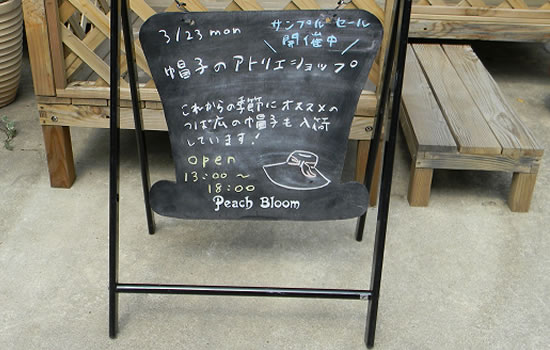 3/23 mon
サンプルセール
開催中
帽子のアトリエショップ
これからの季節にオススメの
つば広の帽子も入荷
しています!
open
13:00~
18:00
Peach Bloom